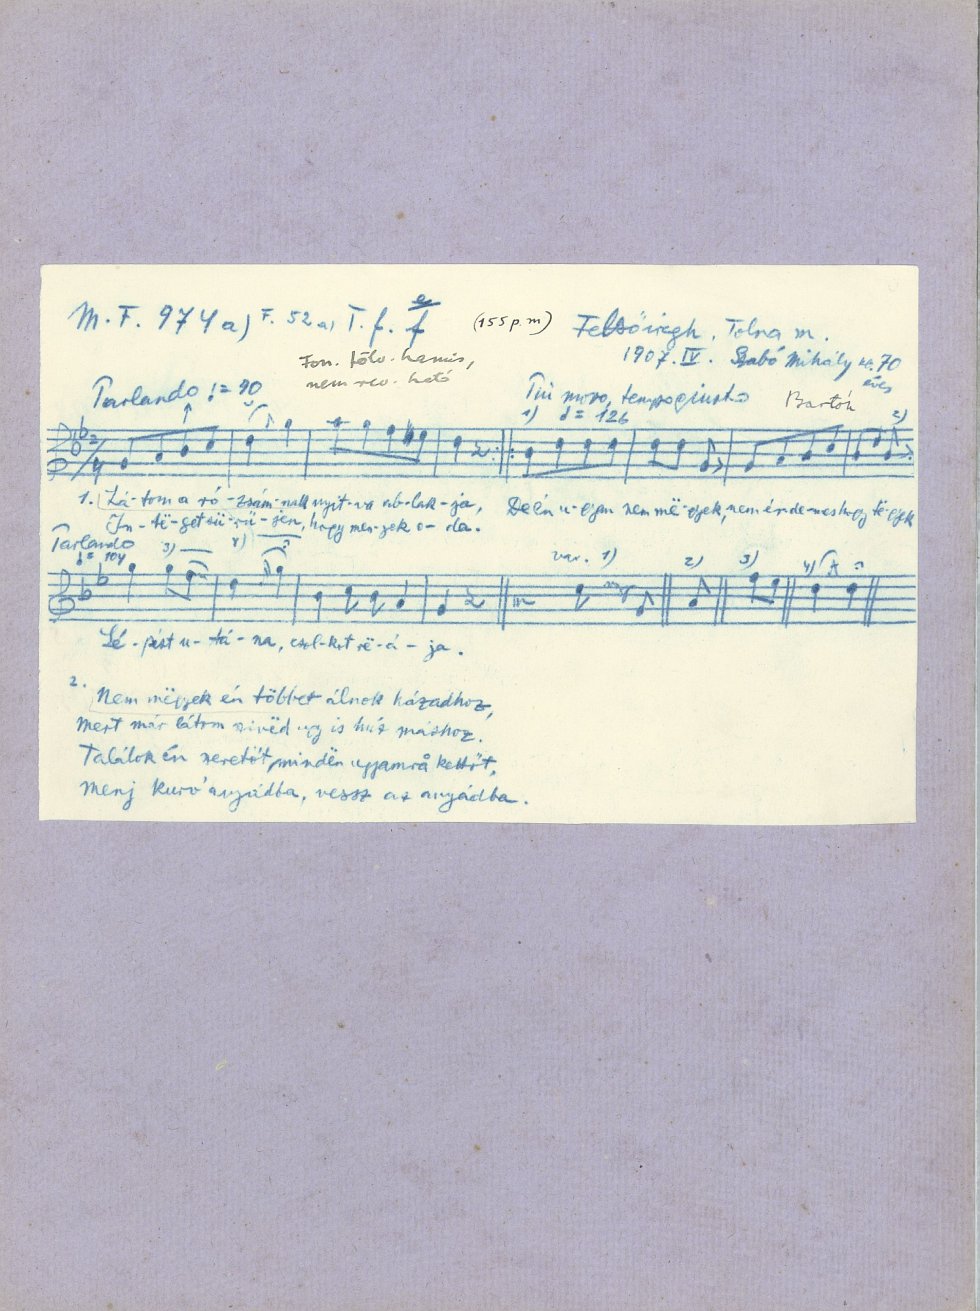 M.F. 974a) F. 52a) T. f. f (155 p.m) Felsőiregh, Tolna m.
1907. IV. Szabó Mihály 70
éves
Fon. fölv. hamis,
nem rev. ható
Bartók
Parlando ♩= 90
Più mosso, tempo giusto
1) ♩= 126 2)
1. Lá-tom a ró-zsám-nak nyit-va ab-lak-ja, De én u-gyan nem më-gyek, nem ér-de-mes hogy
In-të-get sü-rü-sen, hogy men-jek o-da.
Parlando
♩= 104 3) 4) var. 1) 2) 3) 4)
Lé-pést u-tá-na, csol-kot rë-á-ja.
2. Nem mëgyek én többet álnok házadhoz,
Mert már látom szivëd ugy is húz máshoz.
Találok én szeretőt, mindën ujjamra kettőt,
Menj kurv' anyádba, vessz az anyádba.